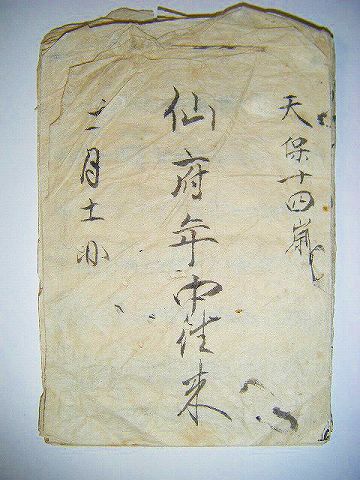 天保十四歳
仙府年中往来
二月十一日